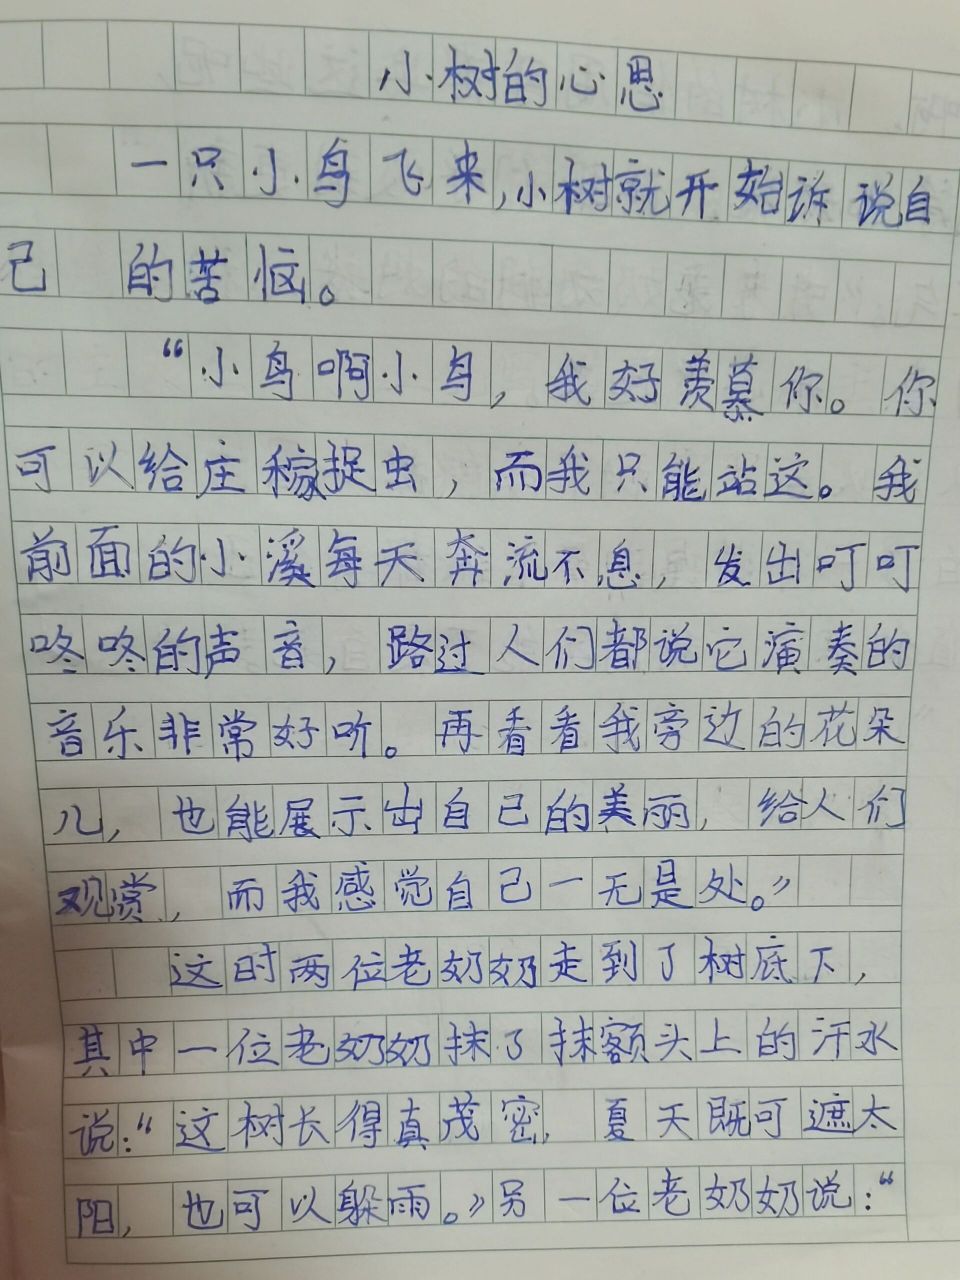 小树的心思
一只小鸟飞来,小树就开始诉说自
己的苦恼。
“小鸟啊小鸟,我好羡慕你。你
可以给庄稼捉虫,而我只能站这。我
前面的小溪每天奔流不息,发出叮叮
咚咚的声音,路过人们都说它演奏的
音乐非常好听。再看看我旁边的花朵
儿,也能展示出自己的美丽,给人们
观赏,而我感觉自己一无是处。”
这时两位老奶奶走到了树底下,
其中一位老奶奶抹了抹额头上的汗水
说:“这树长得真茂密,夏天既可遮太
阳,也可以躲雨。”另一位老奶奶说:“